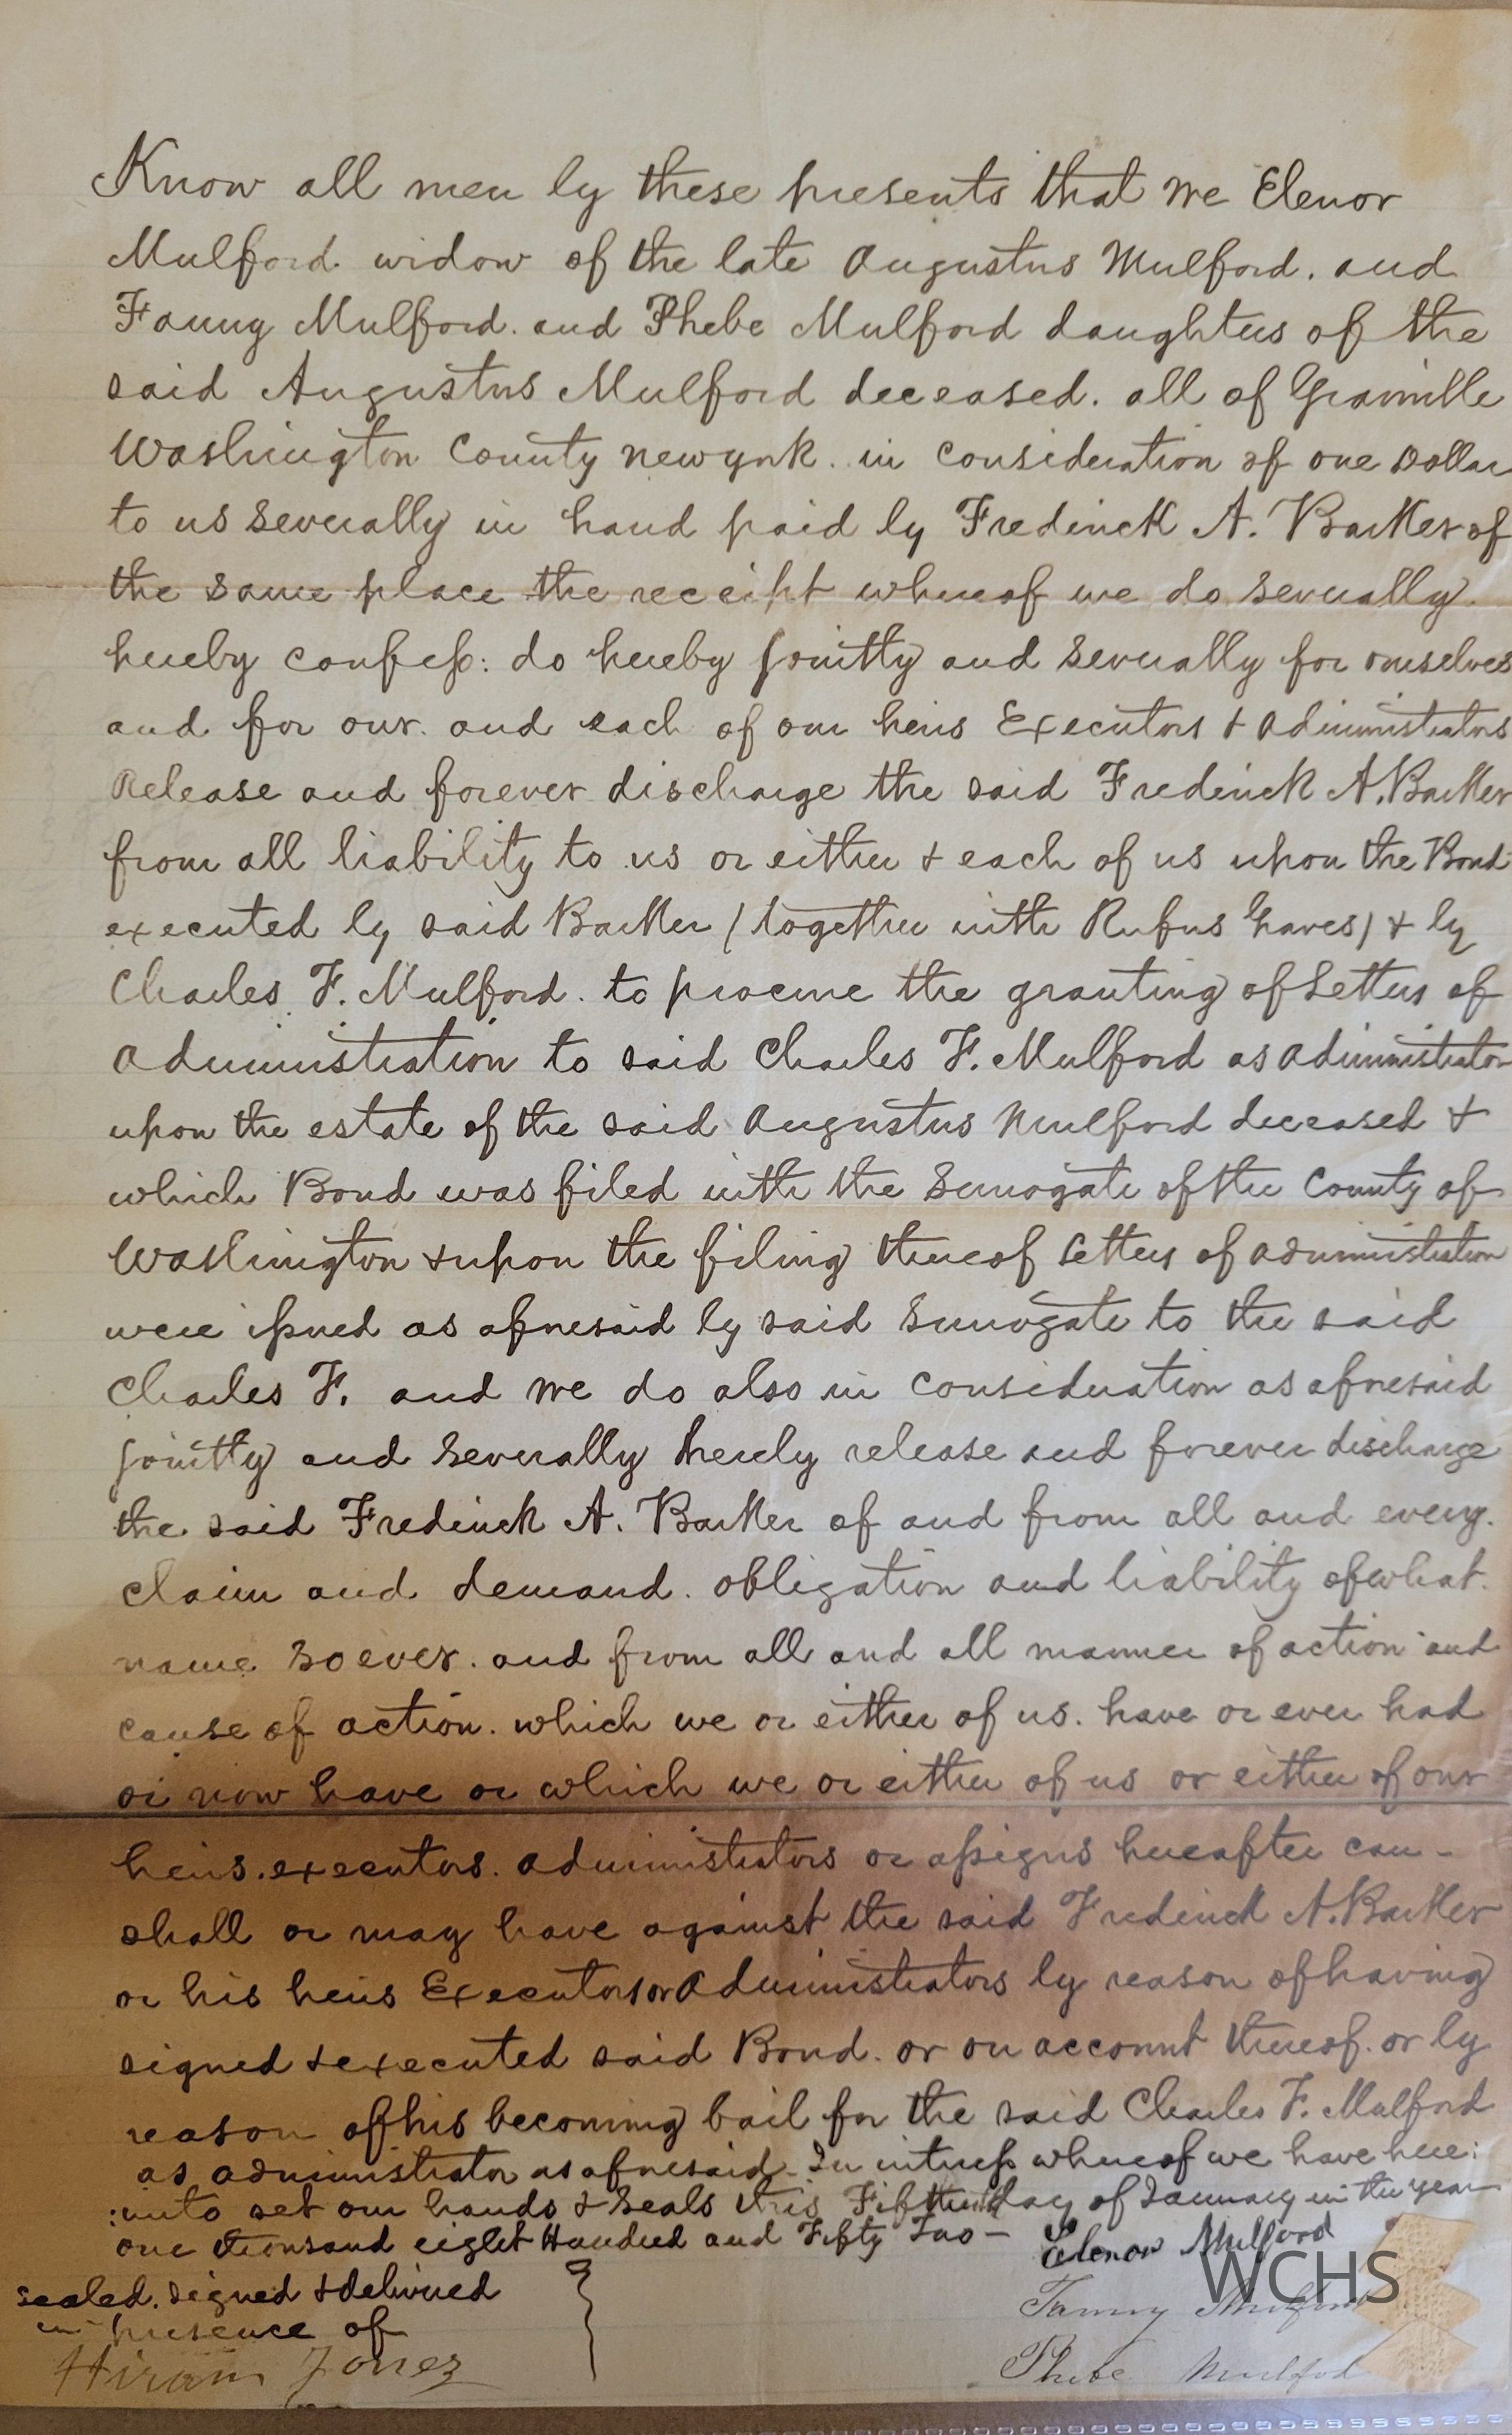 Know all men by these presents that we Elenor
Mulford widow of the late Augustus Mulford. and
Fanny Mulford. and Phebe Mulford daughters of the
said Augustus Mulford deceased. all of Granville
Washington County Newyork. in consideration of one Dollar
to us severally in hand paid by Frederick A. Barker of
the same place the receipt whereof we do severally
hereby confess: do hereby jointly and severally for ourselves
and for our. and each of our heirs Executors & Administrators
Release and forever discharge the said Frederick A. Barker
from all liability to us or either & each of us upon the Bond
executed by said Barker (together with Rufus Graves) & by
Charles F. Mulford. to procure the granting of Letters of
Administration to said Charles F. Mulford as Administrator
upon the estate of the said Augustus Mulford deceased &
which Bond was filed with the Surrogate of the County of
Washington & upon the filing thereof Letters of administration
were issued as aforesaid by said Surrogate to the said
Charles F. and we do also in consideration as aforesaid
jointly and severally hereby release and forever discharge
the said Frederick A. Barker of and from all and every.
claim and demand. obligation and liability of what.
name so ever. and from all and all manner of action and
cause of action. which we or either of us. have or ever had
or now have or which we or either of us or either of our
heirs. executors. administrators or assigns hereafter can -
shall or may have against the said Frederick A. Barker
or his heirs Executors or Administrators by reason of having
signed & executed said Bond. or on account thereof. or by
reason of his becoming bail for the said Charles F. Mulford
as administrator as aforesaid - In witness whereof we have here:
:unto set our hands & seals this day of January in the year
one thousand eight Hundred and Fifty Two - Elenor Mulford
sealed. signed & delivered
in presence of
Fanny Mulford
Hiram Jones
Phebe Mulford
WCHS